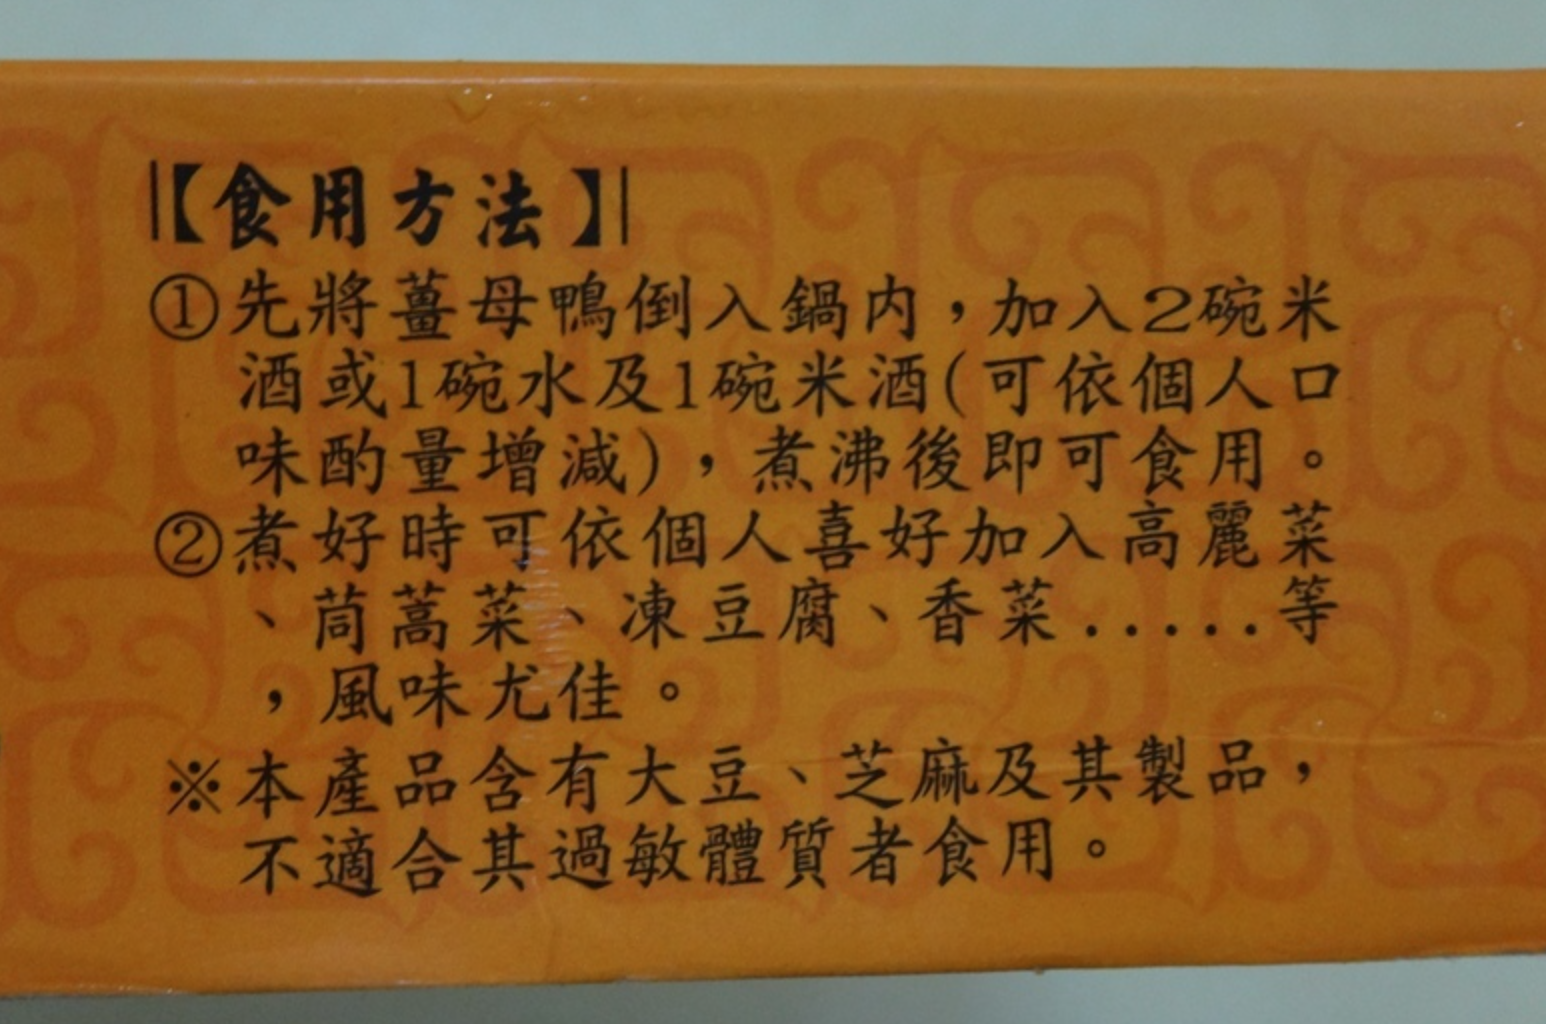 【食用方法】
①先將薑母鴨倒入鍋內，加入2碗米
酒或1碗水及1碗米酒(可依個人口
味酌量增減)，煮沸後即可食用。
②煮好時可依個人喜好加入高麗菜
、茼蒿菜、凍豆腐、香菜.....等
，風味尤佳。
※本產品含有大豆、芝麻及其製品，
不適合其過敏體質者食用。